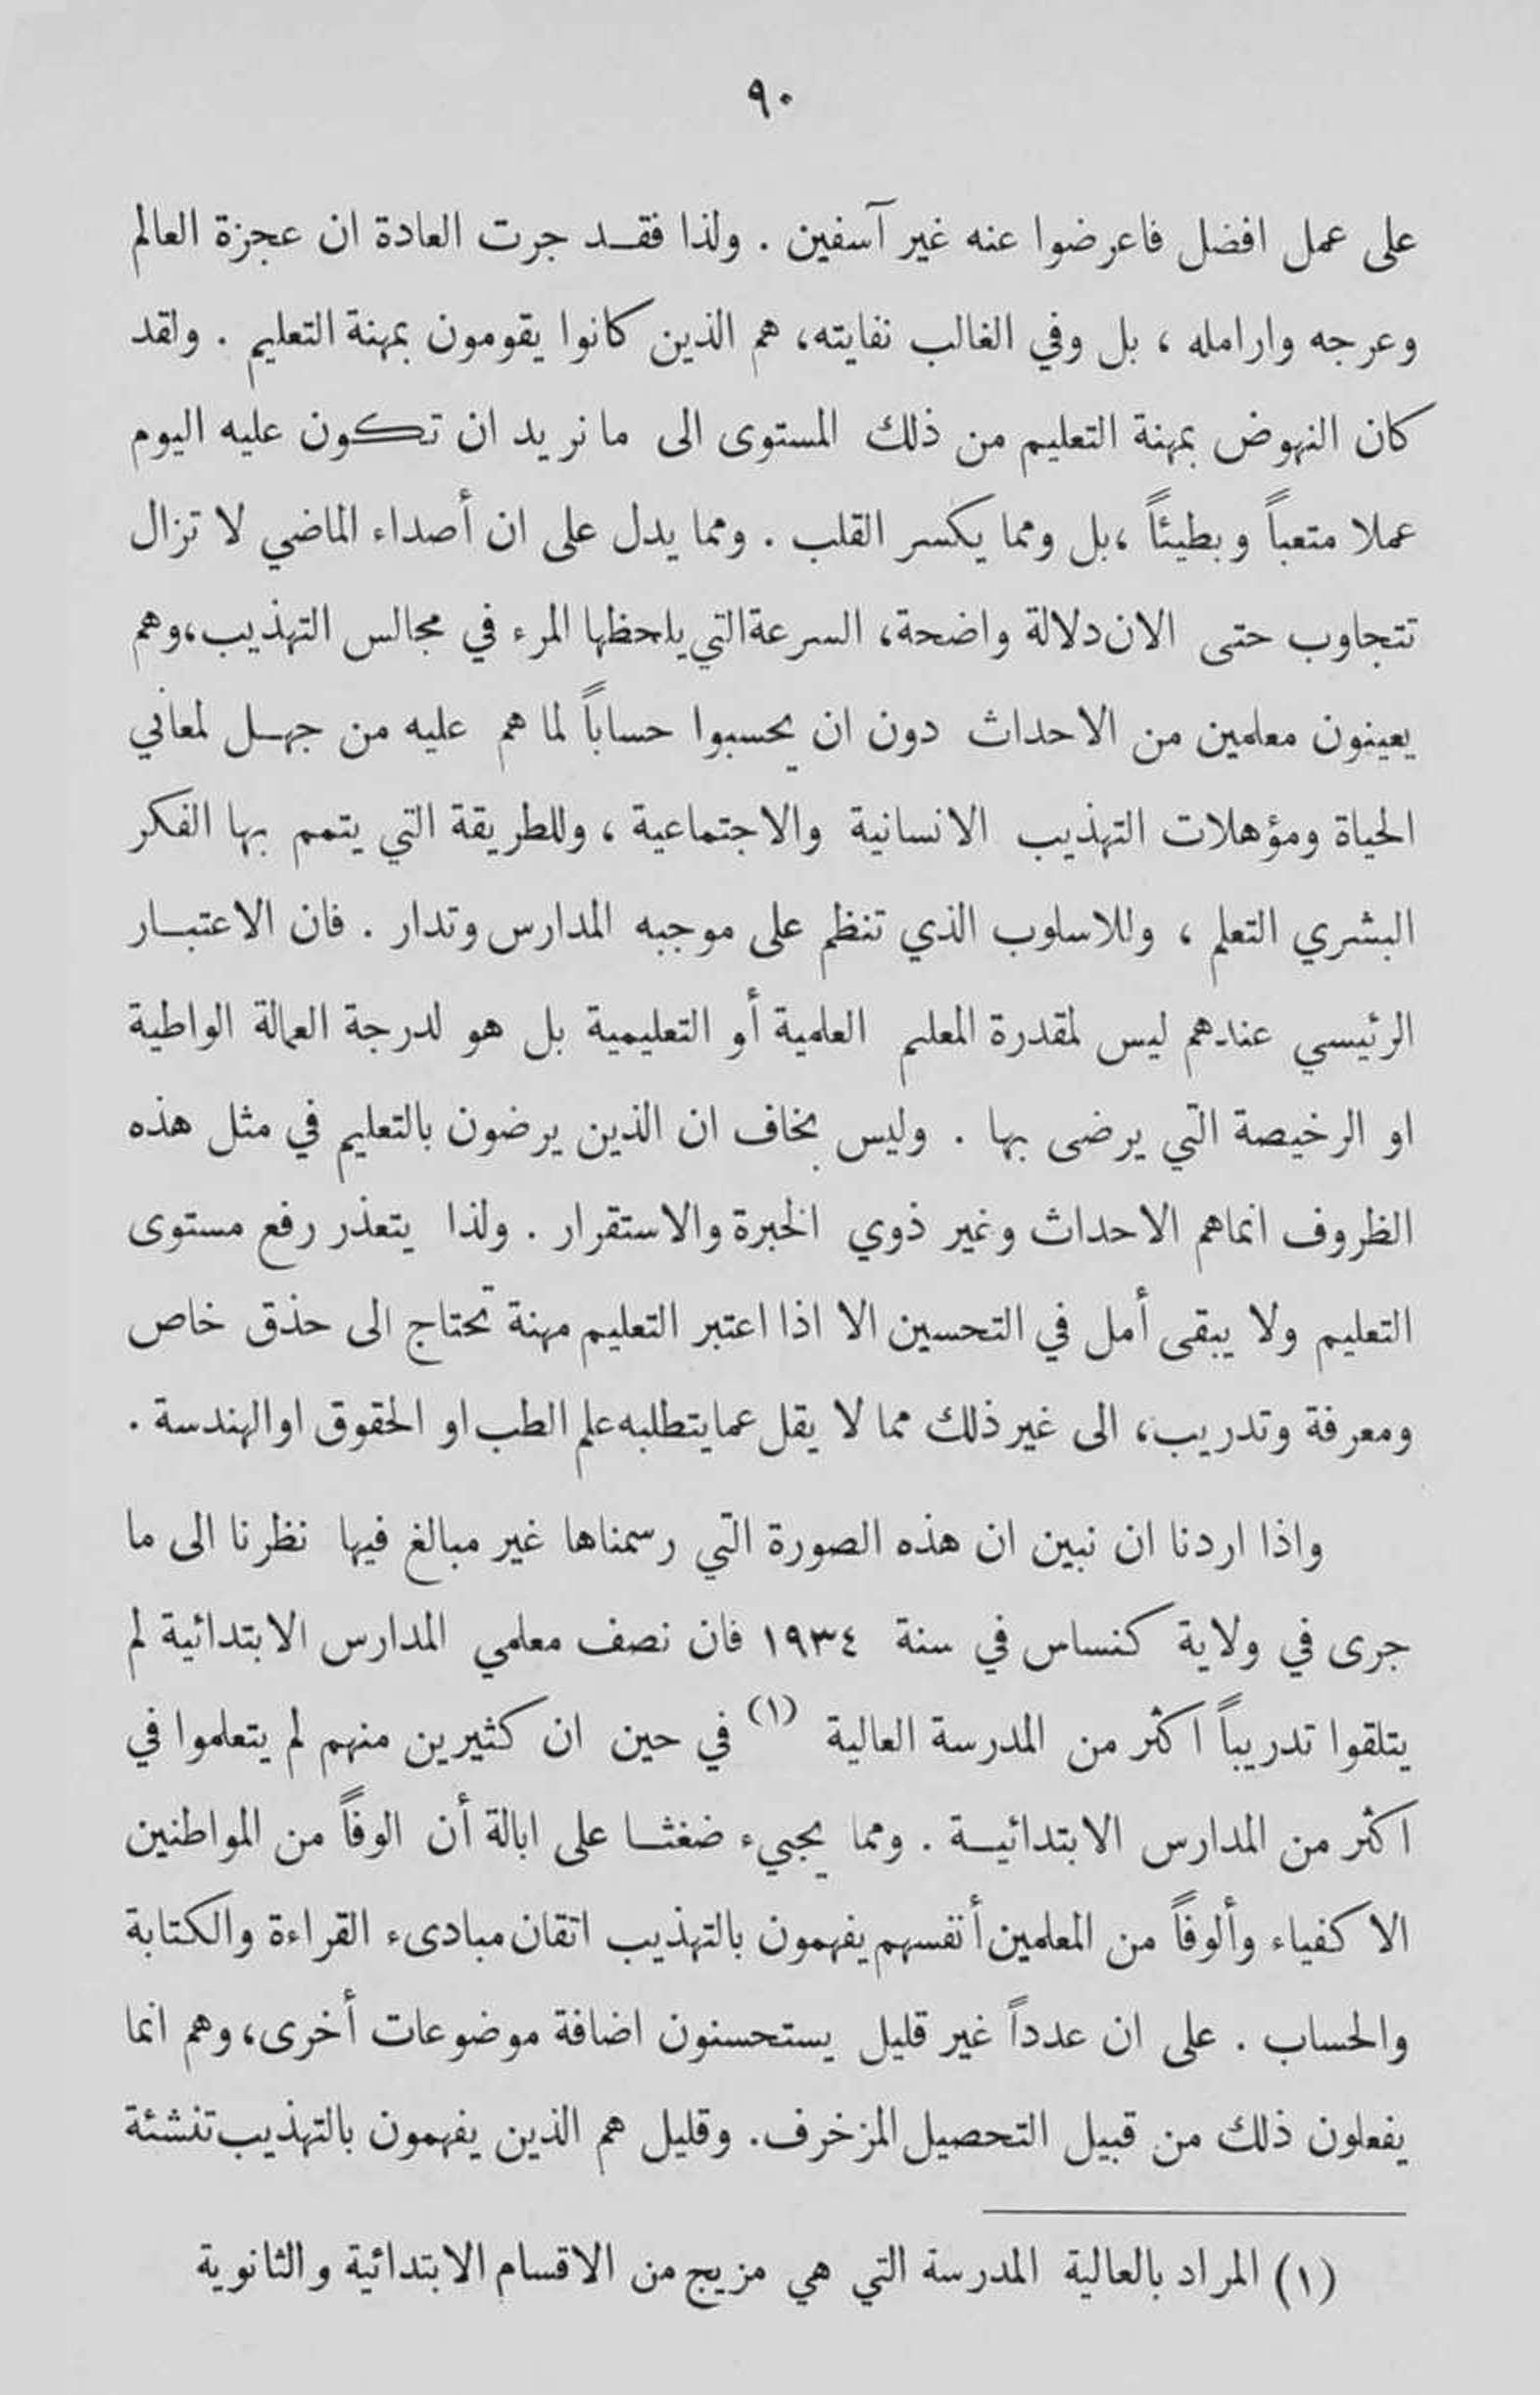 ٩٠
على عمل افضل فاعرضوا عنه غير آسفين . ولذا فقد جرت العادة ان عجزة العالم
وعرجه وارامله ، بل وفي الغالب نفايته، هم الذين كانوا يقومون بمهنة التعليم . ولقد
كان النهوض بمهنة التعليم من ذلك المستوى الى ما نريد ان تكون عليه اليوم
عملا متعباً وبطيئاً ،بل ومما يكسر القلب . ومما يدل على ان أصداء الماضي لا تزال
تتجاوب حتى الان دلالة واضحة، السرعة التي يلحظها المرء في مجالس التهذيب،وهم
يعينون معلمين من الاحداث دون ان يحسبوا حساباً لما هم عليه من جهل لمعاني
الحياة ومؤهلات التهذيب الانسانية والاجتماعية ، وللطريقة التي يتمم بها الفكر
البشري التعلم ، وللاسلوب الذي تنظم على موجبه المدارس وتدار . فان الاعتبار
الرئيسي عندهم ليس لمقدرة المعلم العلمية أو التعليمية بل هو لدرجة العمالة الواطية
او الرخيصة التي يرضى بها . وليس بخاف ان الذين يرضون بالتعليم في مثل هذه
الظروف انماهم الاحداث وغير ذوي الخبرة والاستقرار . ولذا يتعذر رفع مستوى
التعليم ولا يبقى أمل في التحسين الا اذا اعتبر التعليم مهنة تحتاج الى حذق خاص
ومعرفة وتدريب، الى غير ذلك مما لا يقل عما يتطلبه علم الطب او الحقوق او الهندسة .
واذا اردنا ان نبين ان هذه الصورة التي رسمناها غير مبالغ فيها نظرنا الى ما
جرى في ولاية كنساس في سنة ١٩٣٤ فان نصف معلمي المدارس الابتدائية لم
يتلقوا تدريباً اكثر من المدرسة العالية (١) في حين ان كثيرين منهم لم يتعلموا في
اكثر من المدارس الابتدائية . ومما يجيء ضغثا على ابالة أن الوفاً من المواطنين
الاكفياء وألوفاً من المعلمين أنفسهم يفهمون بالتهذيب اتقان مبادىء القراءة والكتابة
والحساب . على ان عدداً غير قليل يستحسنون اضافة موضوعات أخرى، وهم انما
يفعلون ذلك من قبيل التحصيل المزخرف. وقليل هم الذين يفهمون بالتهذيب تنشئة
(١) المراد بالعالية المدرسة التي هي مزيج من الاقسام الابتدائية والثانوية